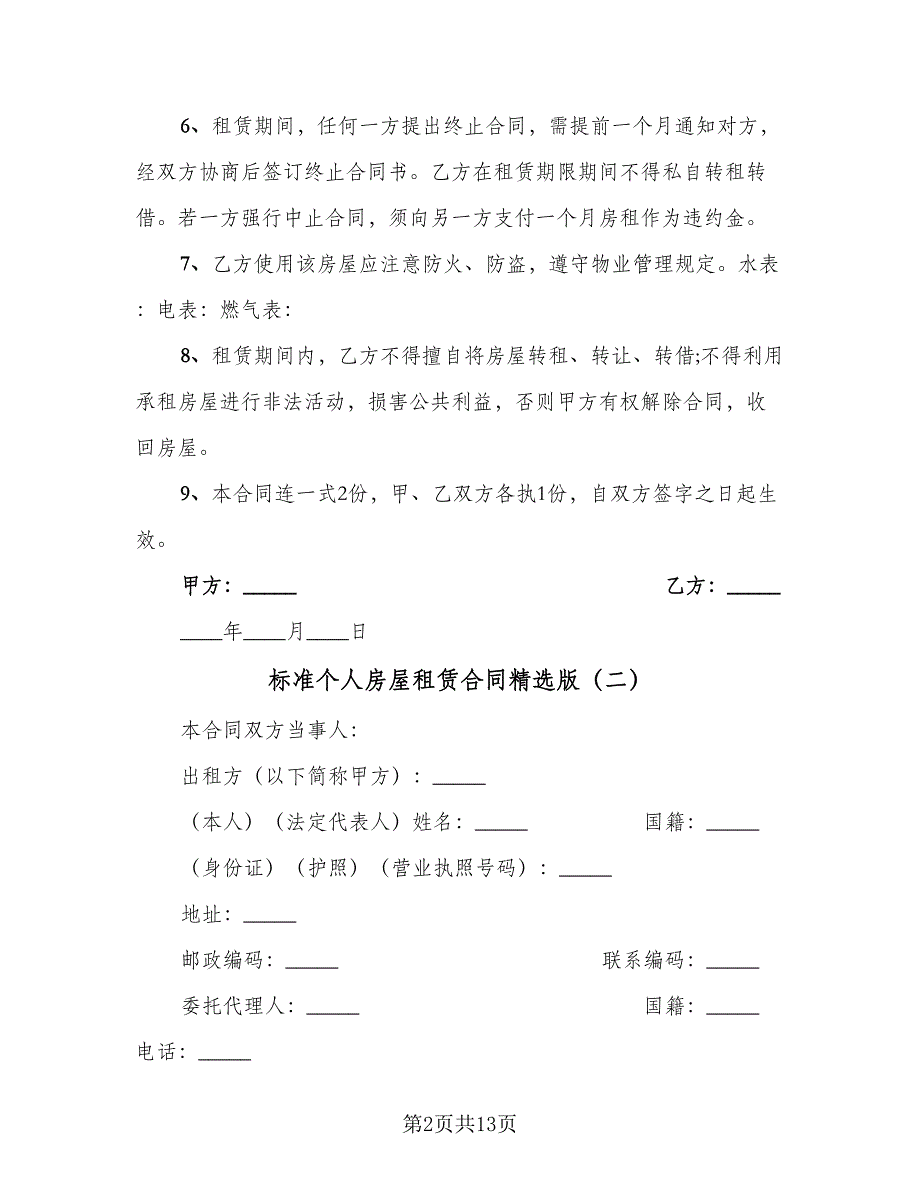 6、租赁期间，任何一方提出终止合同，需提前一个月通知对方，
经双方协商后签订终止合同书。乙方在租赁期限期间不得私自转租转
借。若一方强行中止合同，须向另一方支付一个月房租作为违约金。
7、乙方使用该房屋应注意防火、防盗，遵守物业管理规定。水表
：电表：燃气表：
8、租赁期间内，乙方不得擅自将房屋转租、转让、转借;不得利用
承租房屋进行非法活动，损害公共利益，否则甲方有权解除合同，收
回房屋。
9、本合同连一式2份，甲、乙双方各执1份，自双方签字之日起生
效。
甲方：_____ 乙方：_____
____年____月____日
标准个人房屋租赁合同精选版（二）
本合同双方当事人：
出租方（以下简称甲方）：_____
（本人）（法定代表人）姓名：_____ 国籍：_____
（身份证）（护照）（营业执照号码）：_____
地址：_____
邮政编码：_____ 联系编码：_____
委托代理人：_____ 国籍：_____
电话：_____
第2页共13页